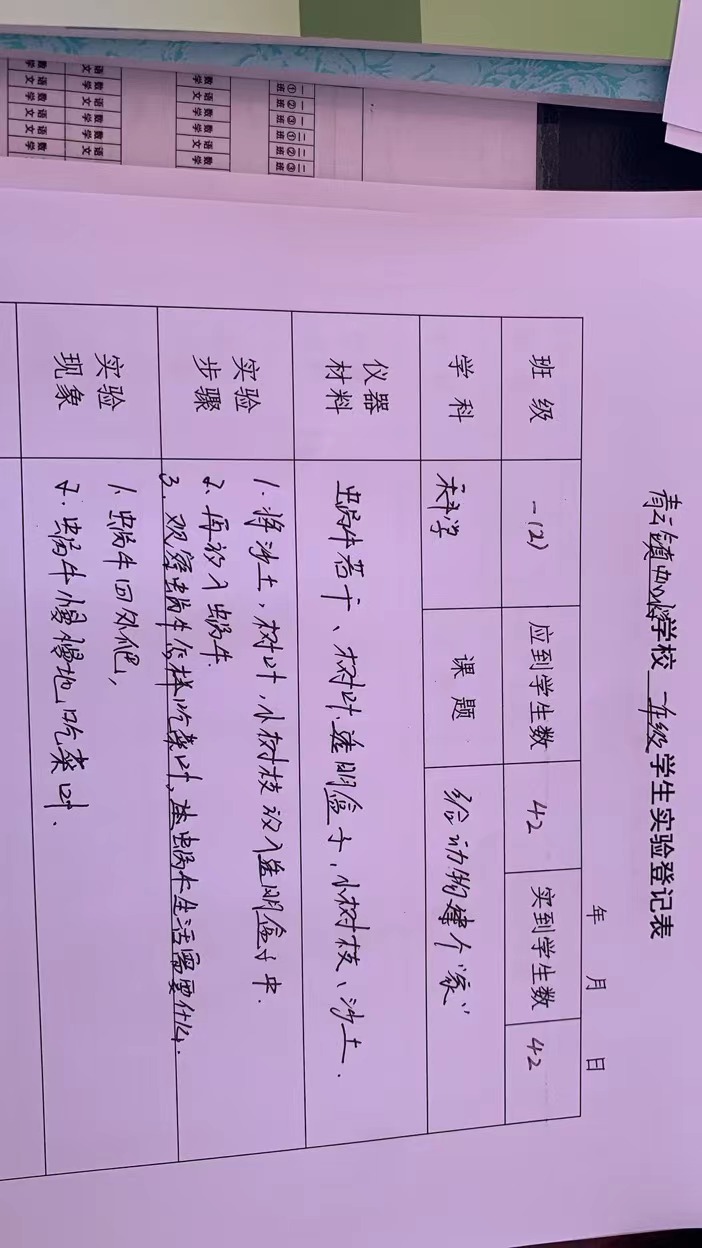 青云镇中心小学校 一年级学生实验登记表
年 月 日
班级 一(2) 应到学生数 42 实到学生数 42
学科 科学 课题 给动物建个“家”
仪器材料 蜗牛若干、树叶、透明盒子,小树枝、沙土.
实验步骤 1. 将沙土,树叶,小树枝放入透明盒子中.
2. 再放入蜗牛.
3. 观察蜗牛怎样吃菜叶,蜗牛生活需要什么.
实验现象 1. 蜗牛四处爬,
2. 蜗牛慢慢地吃菜叶.
一①班
一②班
一③班
二①班
二②班
二③班
数学
语文
数学
语文
数学
语文